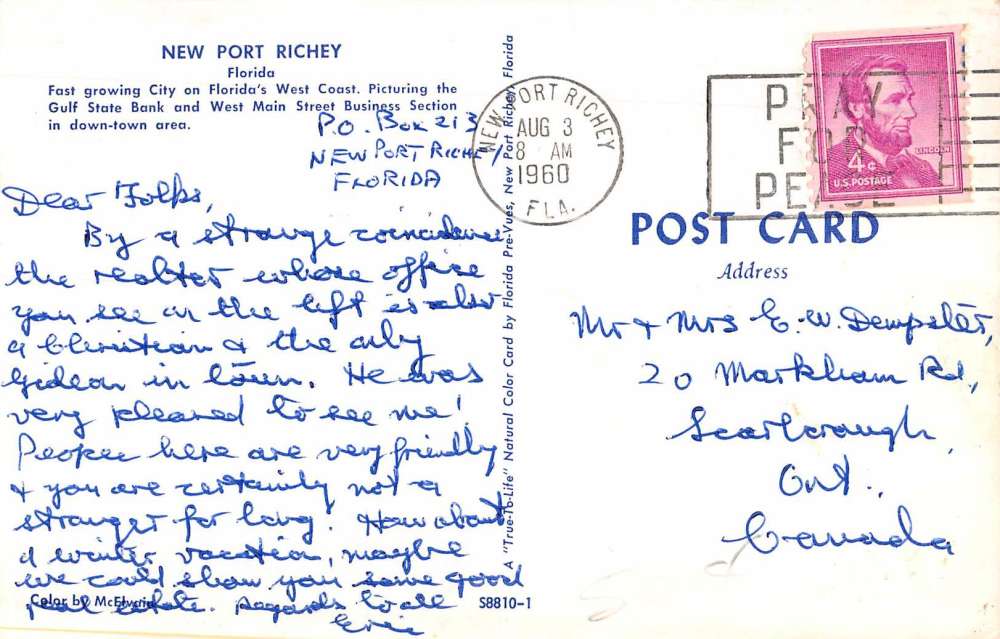 NEW PORT RICHEY
Florida
Fast growing City on Florida's West Coast. Picturing the
Gulf State Bank and West Main Street Business Section
in down-town area.
P.O. Box 213
NEW PORT RICHEY
FLORIDA
Dear Folks,
By a strange coincidence
the realtor whose office
you see on the left is also
a Christian & the only
Gideon in town. He was
very pleased to see me!
People here are very friendly
& you are certainly not a
stranger for long! How about
a winter vacation, maybe
we could show you some good
real estate. Regards to all
Eric
Color by McElvain
S8810-1
A "True-To-Life" Natural Color Card by Florida Pre-Vues, New Port Richey, Florida
NEW PORT RICHEY
AUG 3
8 AM
1960
FLA.
PRAY
FOR
PEACE
LINCOLN
4¢
U.S. POSTAGE
POST CARD
Address
Mr & Mrs E. W. Dempster,
20 Markham Rd.,
Scarborough,
Ont.,
Canada